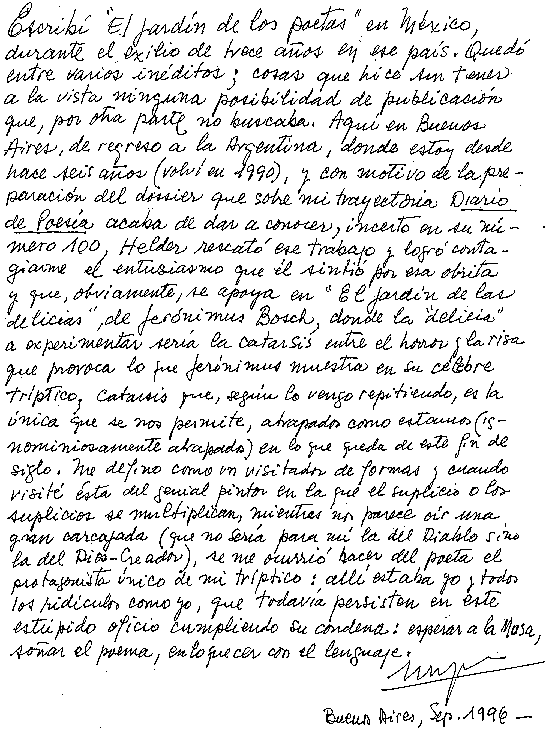 Escribí "El jardín de los poetas" en México,
durante el exilio de trece años en ese país. Quedó
entre varios inéditos; cosas que hice sin tener
a la vista ninguna posibilidad de publicación
que, por otra parte no buscaba. Aquí en Buenos
Aires, de regreso a la Argentina, donde estoy desde
hace seis años (volví en 1990), y con motivo de la pre-
paración del dossier que sobre mi trayectoria Diario
de Poesía acaba de dar a conocer, incerto en su nú-
mero 100, Helder rescató ese trabajo y logró conta-
giarme el entusiasmo que él sintió por esa obrita
y que, obviamente, se apoya en "El jardín de las
delicias", de Jerónimus Bosch, donde la "delicia"
a experimentar sería la catarsis entre el horror y la risa
que provoca lo que Jerónimus muestra en su célebre
tríptico, catarsis que, según lo vengo repitiendo, es la
única que se nos permite, atrapados como estamos (ig-
nominiosamente atrapado) en lo que queda de este fin de
siglo. Me defino como un visitador de formas y cuando
visité ésta del genial pintor en la que el suplicio o los
suplicios se multiplican, mientras nos parece oír una
gran carcajada (que no sería para mí la del Diablo sino
la del Dios-Creador), se me ocurrió hacer del poeta el
protagonista único de mi tríptico: allí estaba yo y todos
los ridículos como yo, que todavía persisten en éste
estúpido oficio cumpliendo su condena: esperar a la Musa,
soñar el poema, enloquecer con el lenguaje.
Buenos Aires, Sep. 1996 —